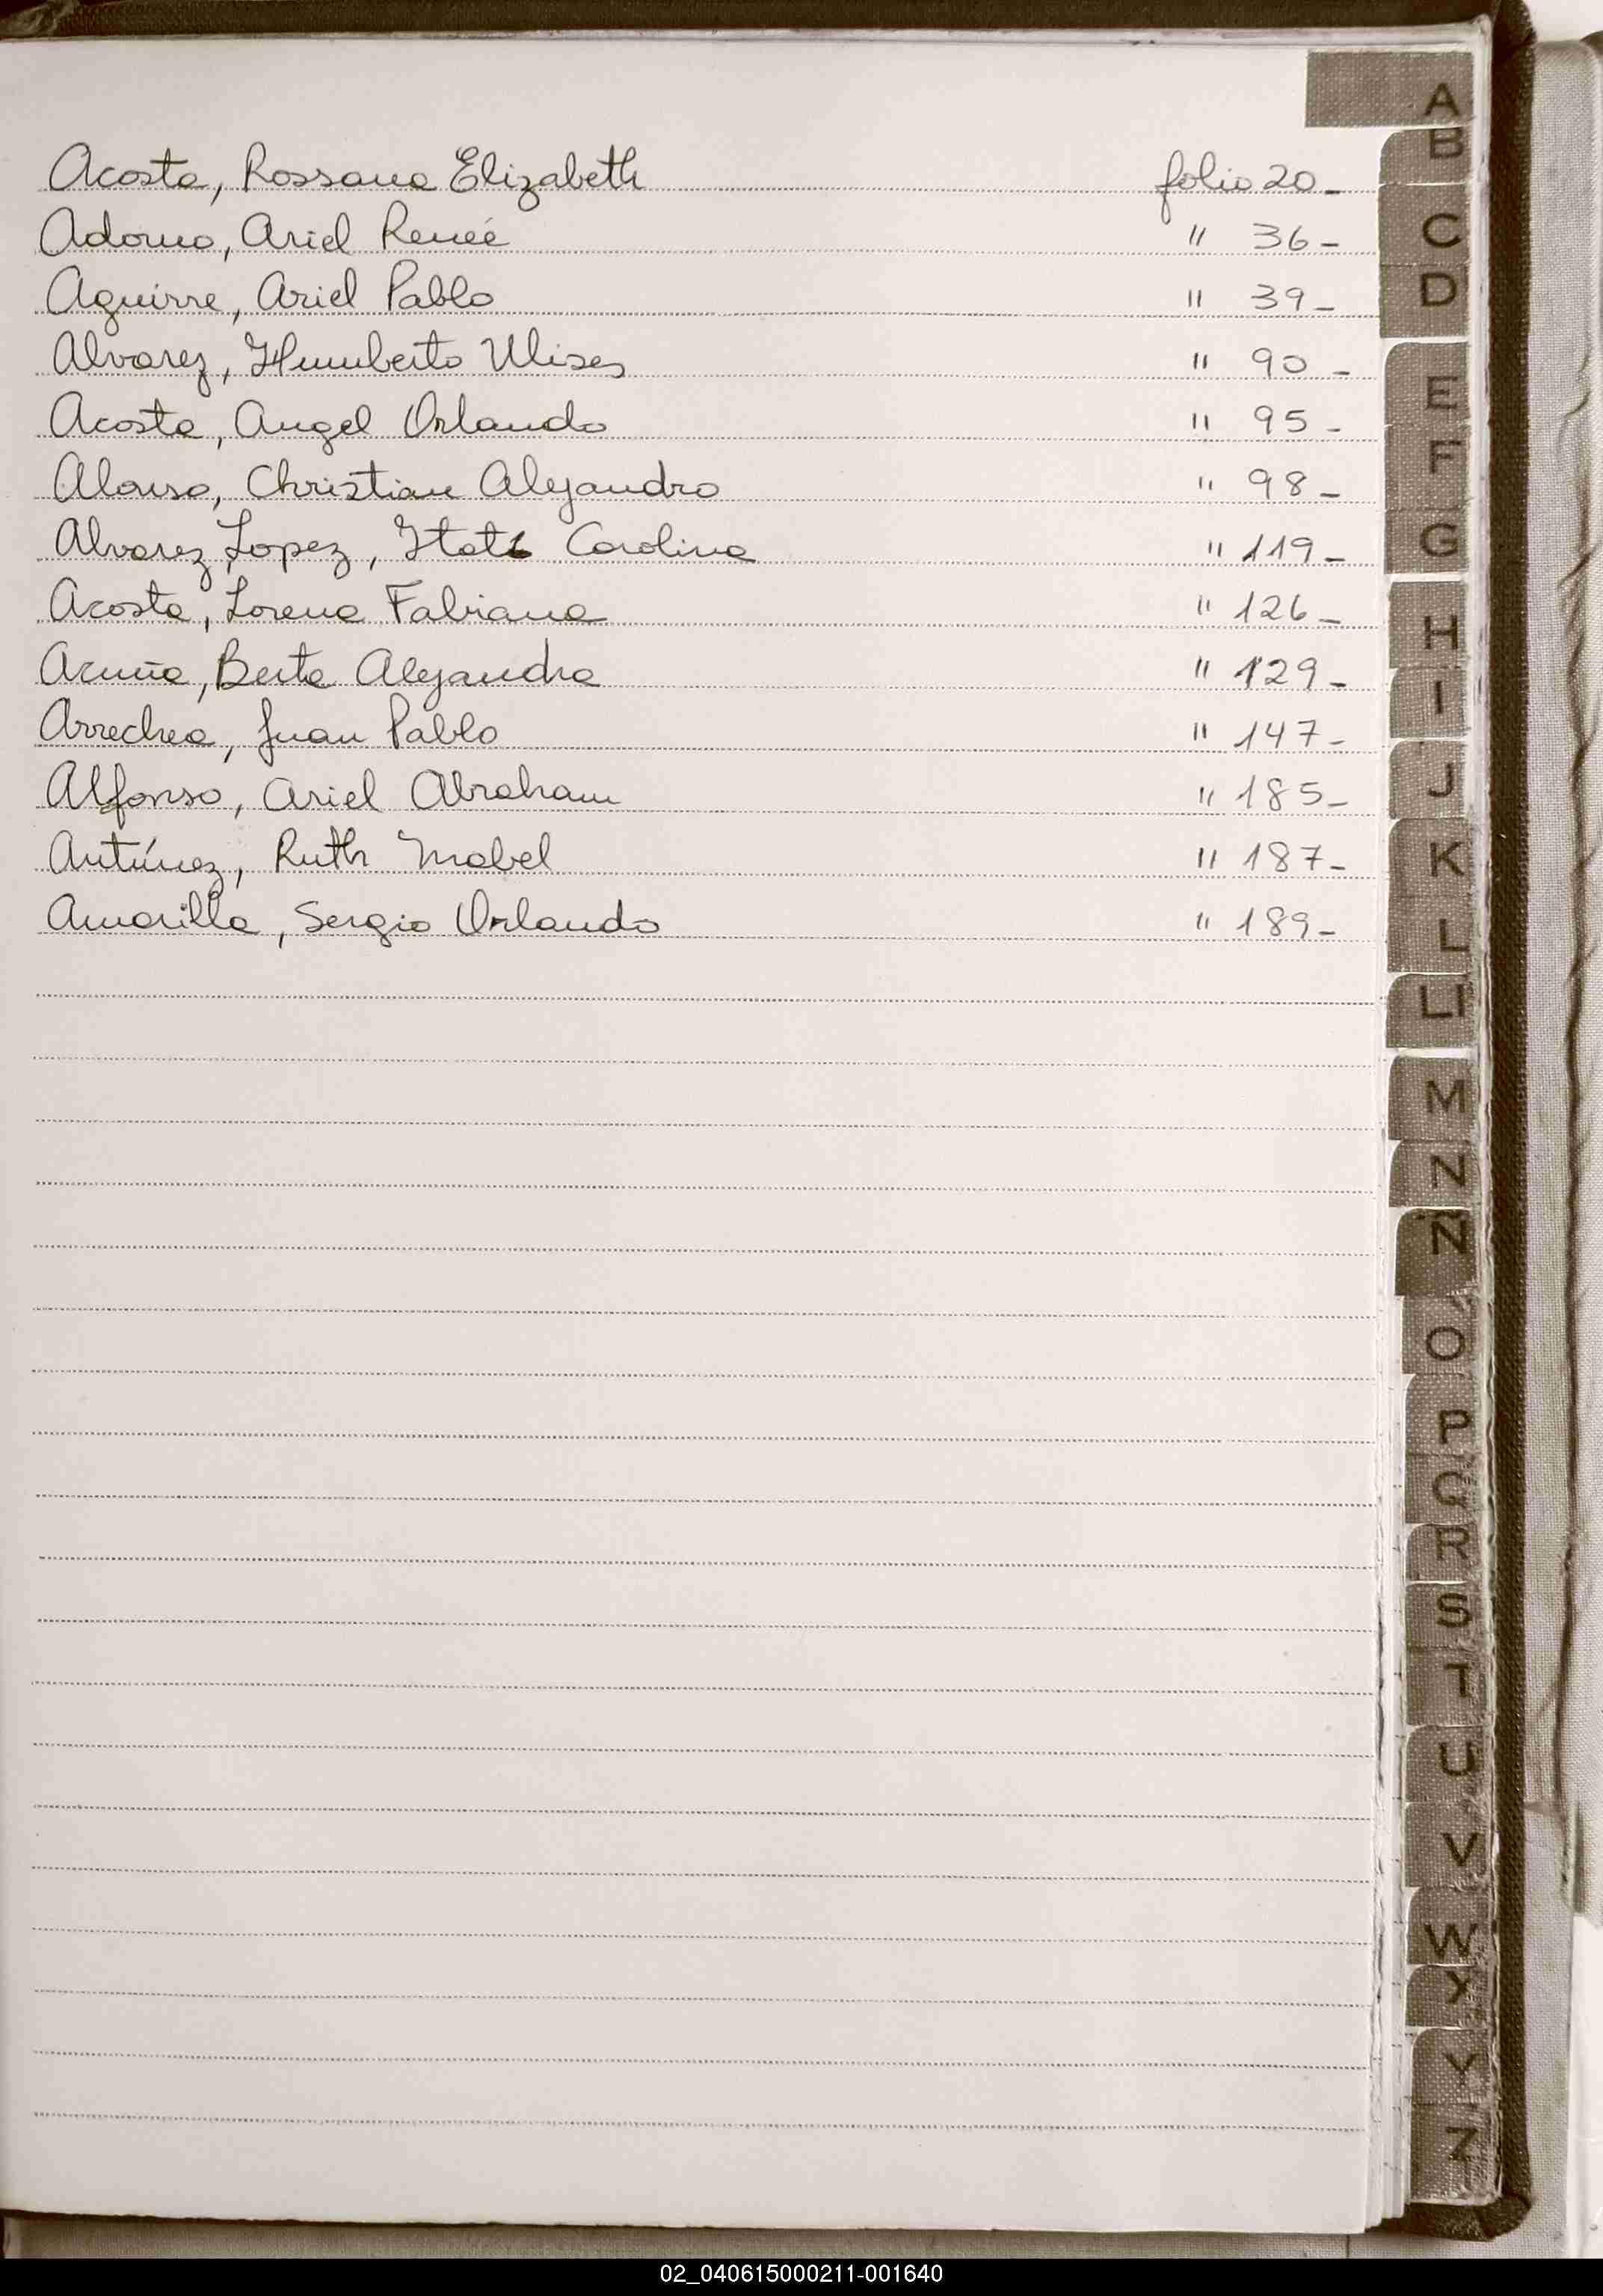 Acosta, Rossana Elizabeth folio 20-
Adorno, Ariel Reneé " 36-
Aguirre, Ariel Pablo " 39-
Alvarez, Humberto Ulises " 90-
Acosta, Angel Orlando " 95-
Alonso, Christian Alejandro " 98-
Alvarez Lopez, Itatí Carolina " 119-
Acosta, Lorena Fabiana " 126-
Acuña, Berta Alejandra " 129-
Arrechea, Juan Pablo " 147-
Alfonso, Ariel Abraham " 185-
Antúnez, Ruth Mabel " 187-
Amarilla, Sergio Orlando " 189-
A
B
C
D
E
F
G
H
I
J
K
L
Ll
M
N
Ñ
O
P
Q
R
S
T
U
V
W
X
Y
Z
02_040615000211-001640